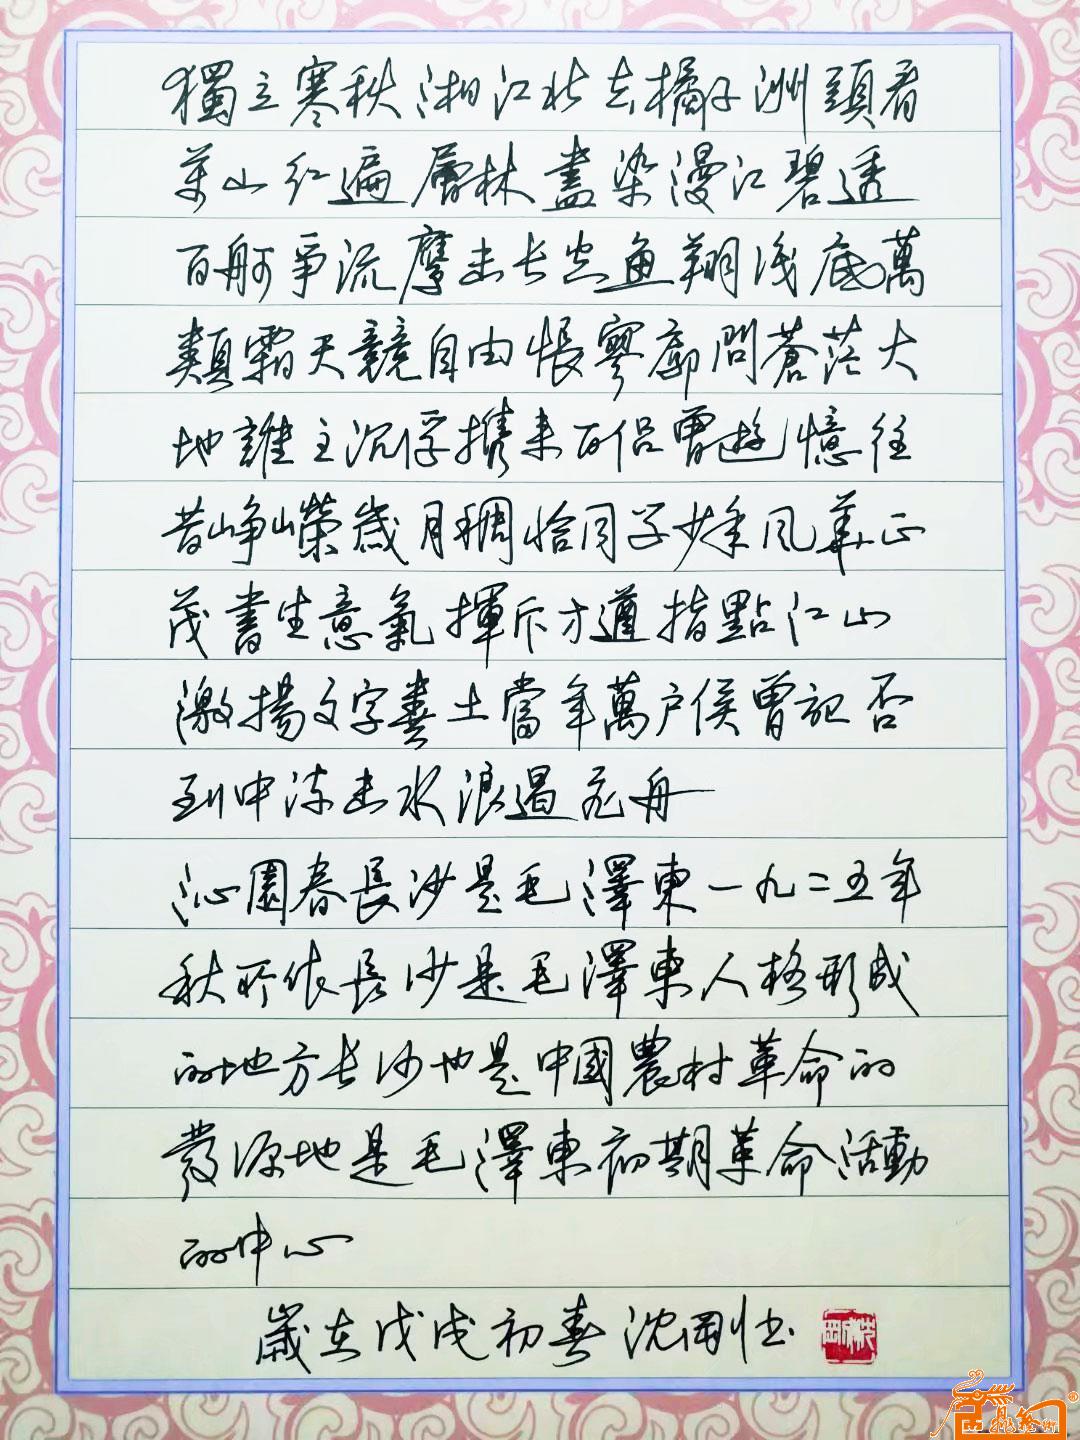 獨立寒秋湘江北去橘子洲頭看
萬山红遍層林盡染漫江碧透
百舸爭流鹰击长空鱼翔浅底萬
類霜天競自由悵寥廓問蒼茫大
地誰主沉浮携来百侣曾遊憶往
昔峥嶸歲月稠恰同子少年风華正
茂書生意氣揮斥方遒指點江山
激揚文字糞土當年萬户侯曾記否
到中流击水浪遏飛舟
沁園春長沙是毛澤東一九二五年
秋所作長沙是毛澤東人格形成
的地方长沙也是中國農村革命的
發源地是毛澤東初期革命活動
的中心
歲在戊戌初春沈剛书